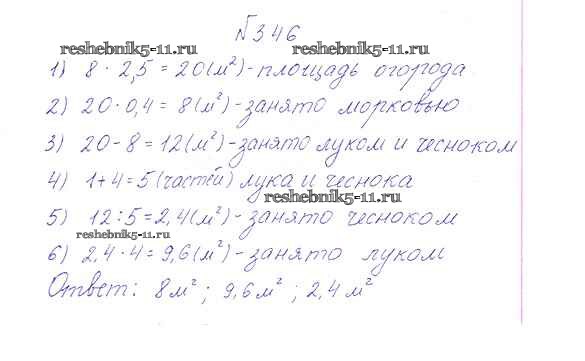 №346
reshebnik5-11.ru reshebnik5-11.ru
1) 8 · 2,5 = 20 (м²) - площадь огорода
2) 20 · 0,4 = 8 (м²) - занято морковью
3) 20 - 8 = 12 (м²) - занято луком и чесноком
4) 1 + 4 = 5 (частей) лука и чеснока
reshebnik5-11.ru
5) 12 : 5 = 2,4 (м²) - занято чесноком
reshebnik5-11.ru
6) 2,4 · 4 = 9,6 (м²) - занято луком
Ответ: 8 м² ; 9,6 м² ; 2,4 м²